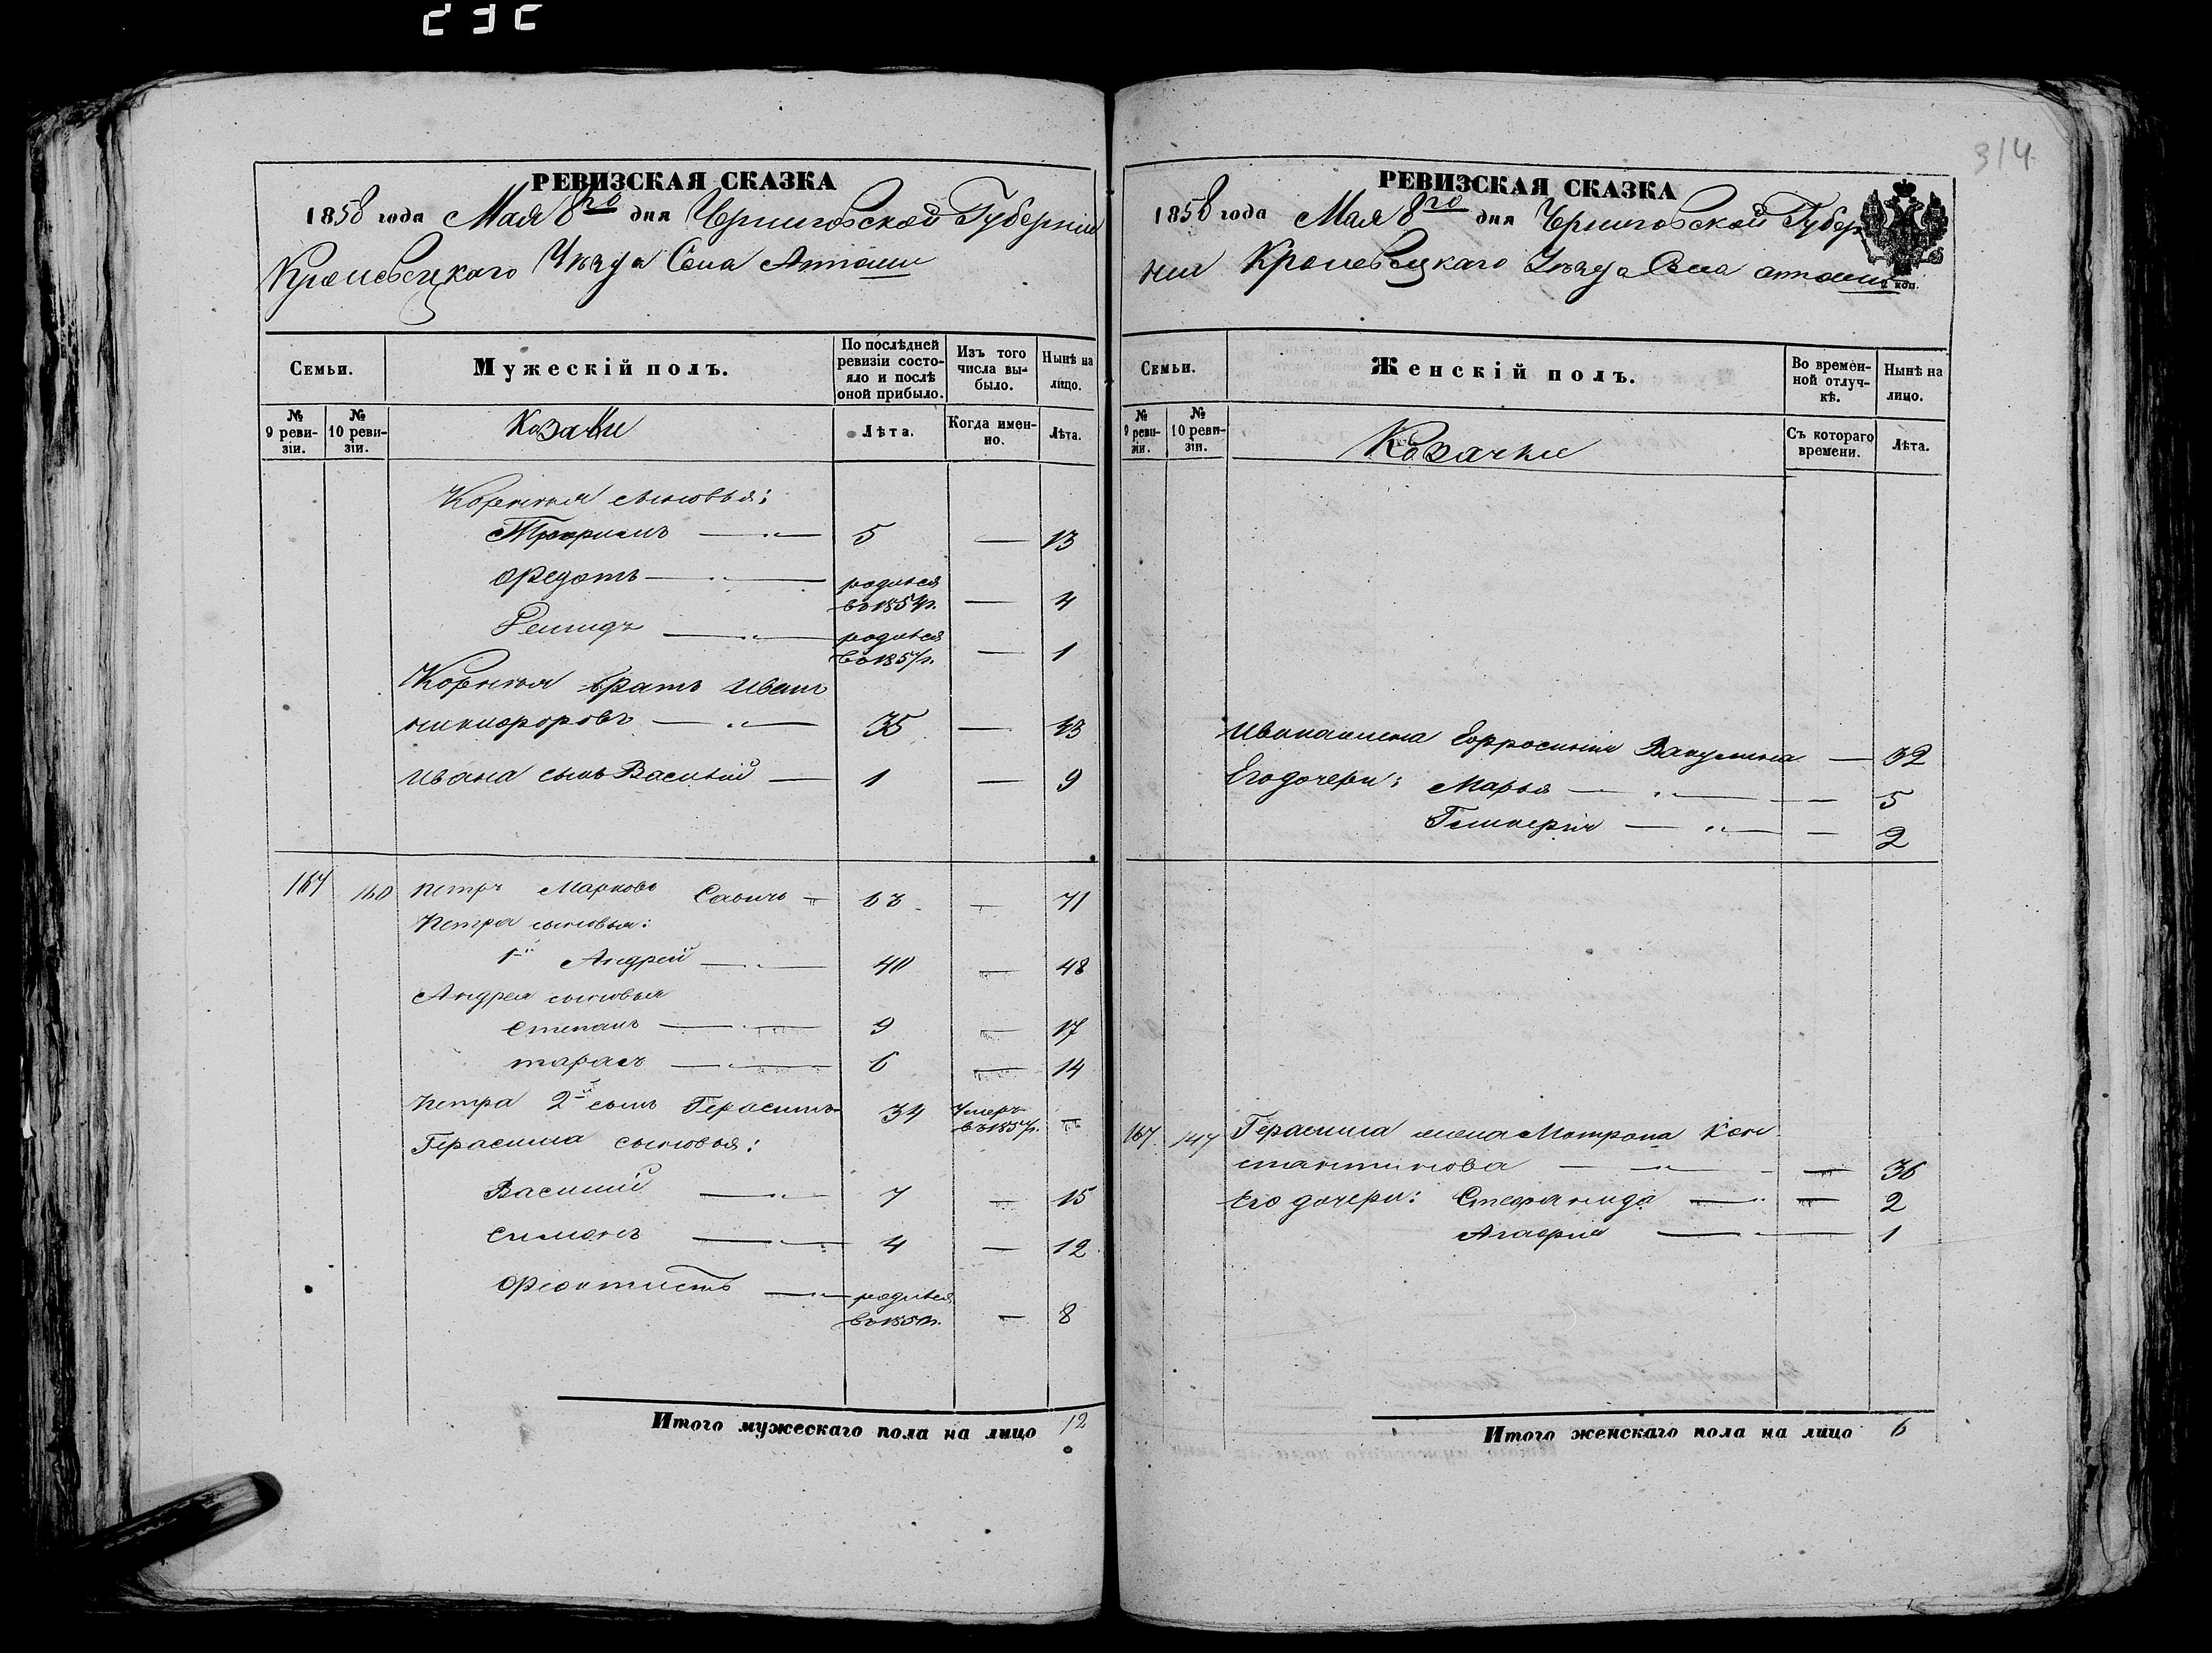 314
РЕВИЗСКАЯ СКАЗКА
1858 года Мая 8го дня Черниговской Губерніи
Кролевецкаго Уѣзда Села Атюши
Семьи.
Мужескій полъ.
По послѣдней ревизіи состояло и послѣ оной прибыло.
Изъ того числа выбыло.
Нынѣ на лицо.
№ 9 ревизіи.
№ 10 ревизіи.
Козаки
Лѣта.
Когда именно.
Лѣта.
Корнилія сыновья:
Трофимъ — „ — 5 — 13
Федотъ — „ — родился въ 1854 г. — 4
— „ — родился въ 1857 г. — 1
Корнилія братъ Иванъ
Никифоровъ — „ — 35 — 43
Ивана сынъ Василій — 1 — 9
167 160 Петръ Марковъ Савичъ — 63 — 71
Петра сыновья:
1й Андрей — „ — 40 — 48
Андрея сыновья
Степанъ — „ — 9 — 17
Тарасъ — „ — 6 — 14
Петра 2й сынъ Герасимъ 34 Умеръ въ 1857 г. —
Герасима сыновья:
Василій — „ — 7 — 15
Симонъ — „ — 4 — 12
Феоктистъ — „ — родился въ 1850 г. — 8
Итого мужескаго пола на лицо 12
РЕВИЗСКАЯ СКАЗКА
1858 года Мая 8го дня Черниговской Губер
ніи Кролевецкаго Уѣзда Села Атюши
коп.
Семьи.
Женскій полъ.
Во временной отлучкѣ.
Нынѣ на лицо.
№ 9 ревизіи.
№ 10 ревизіи.
Козачки
Съ котораго времени.
Лѣта.
Ивана жена Евфросинія Вакулина — 32
Его дочери: Марья — „ — — 5
Гликерія — „ — — 2
167 147 Герасима жена Матрона Кон
стантинова — „ — — 36
Его дочери: Стефанида — „ — 2
Агафія — „ — 1
Итого женскаго пола на лицо 6